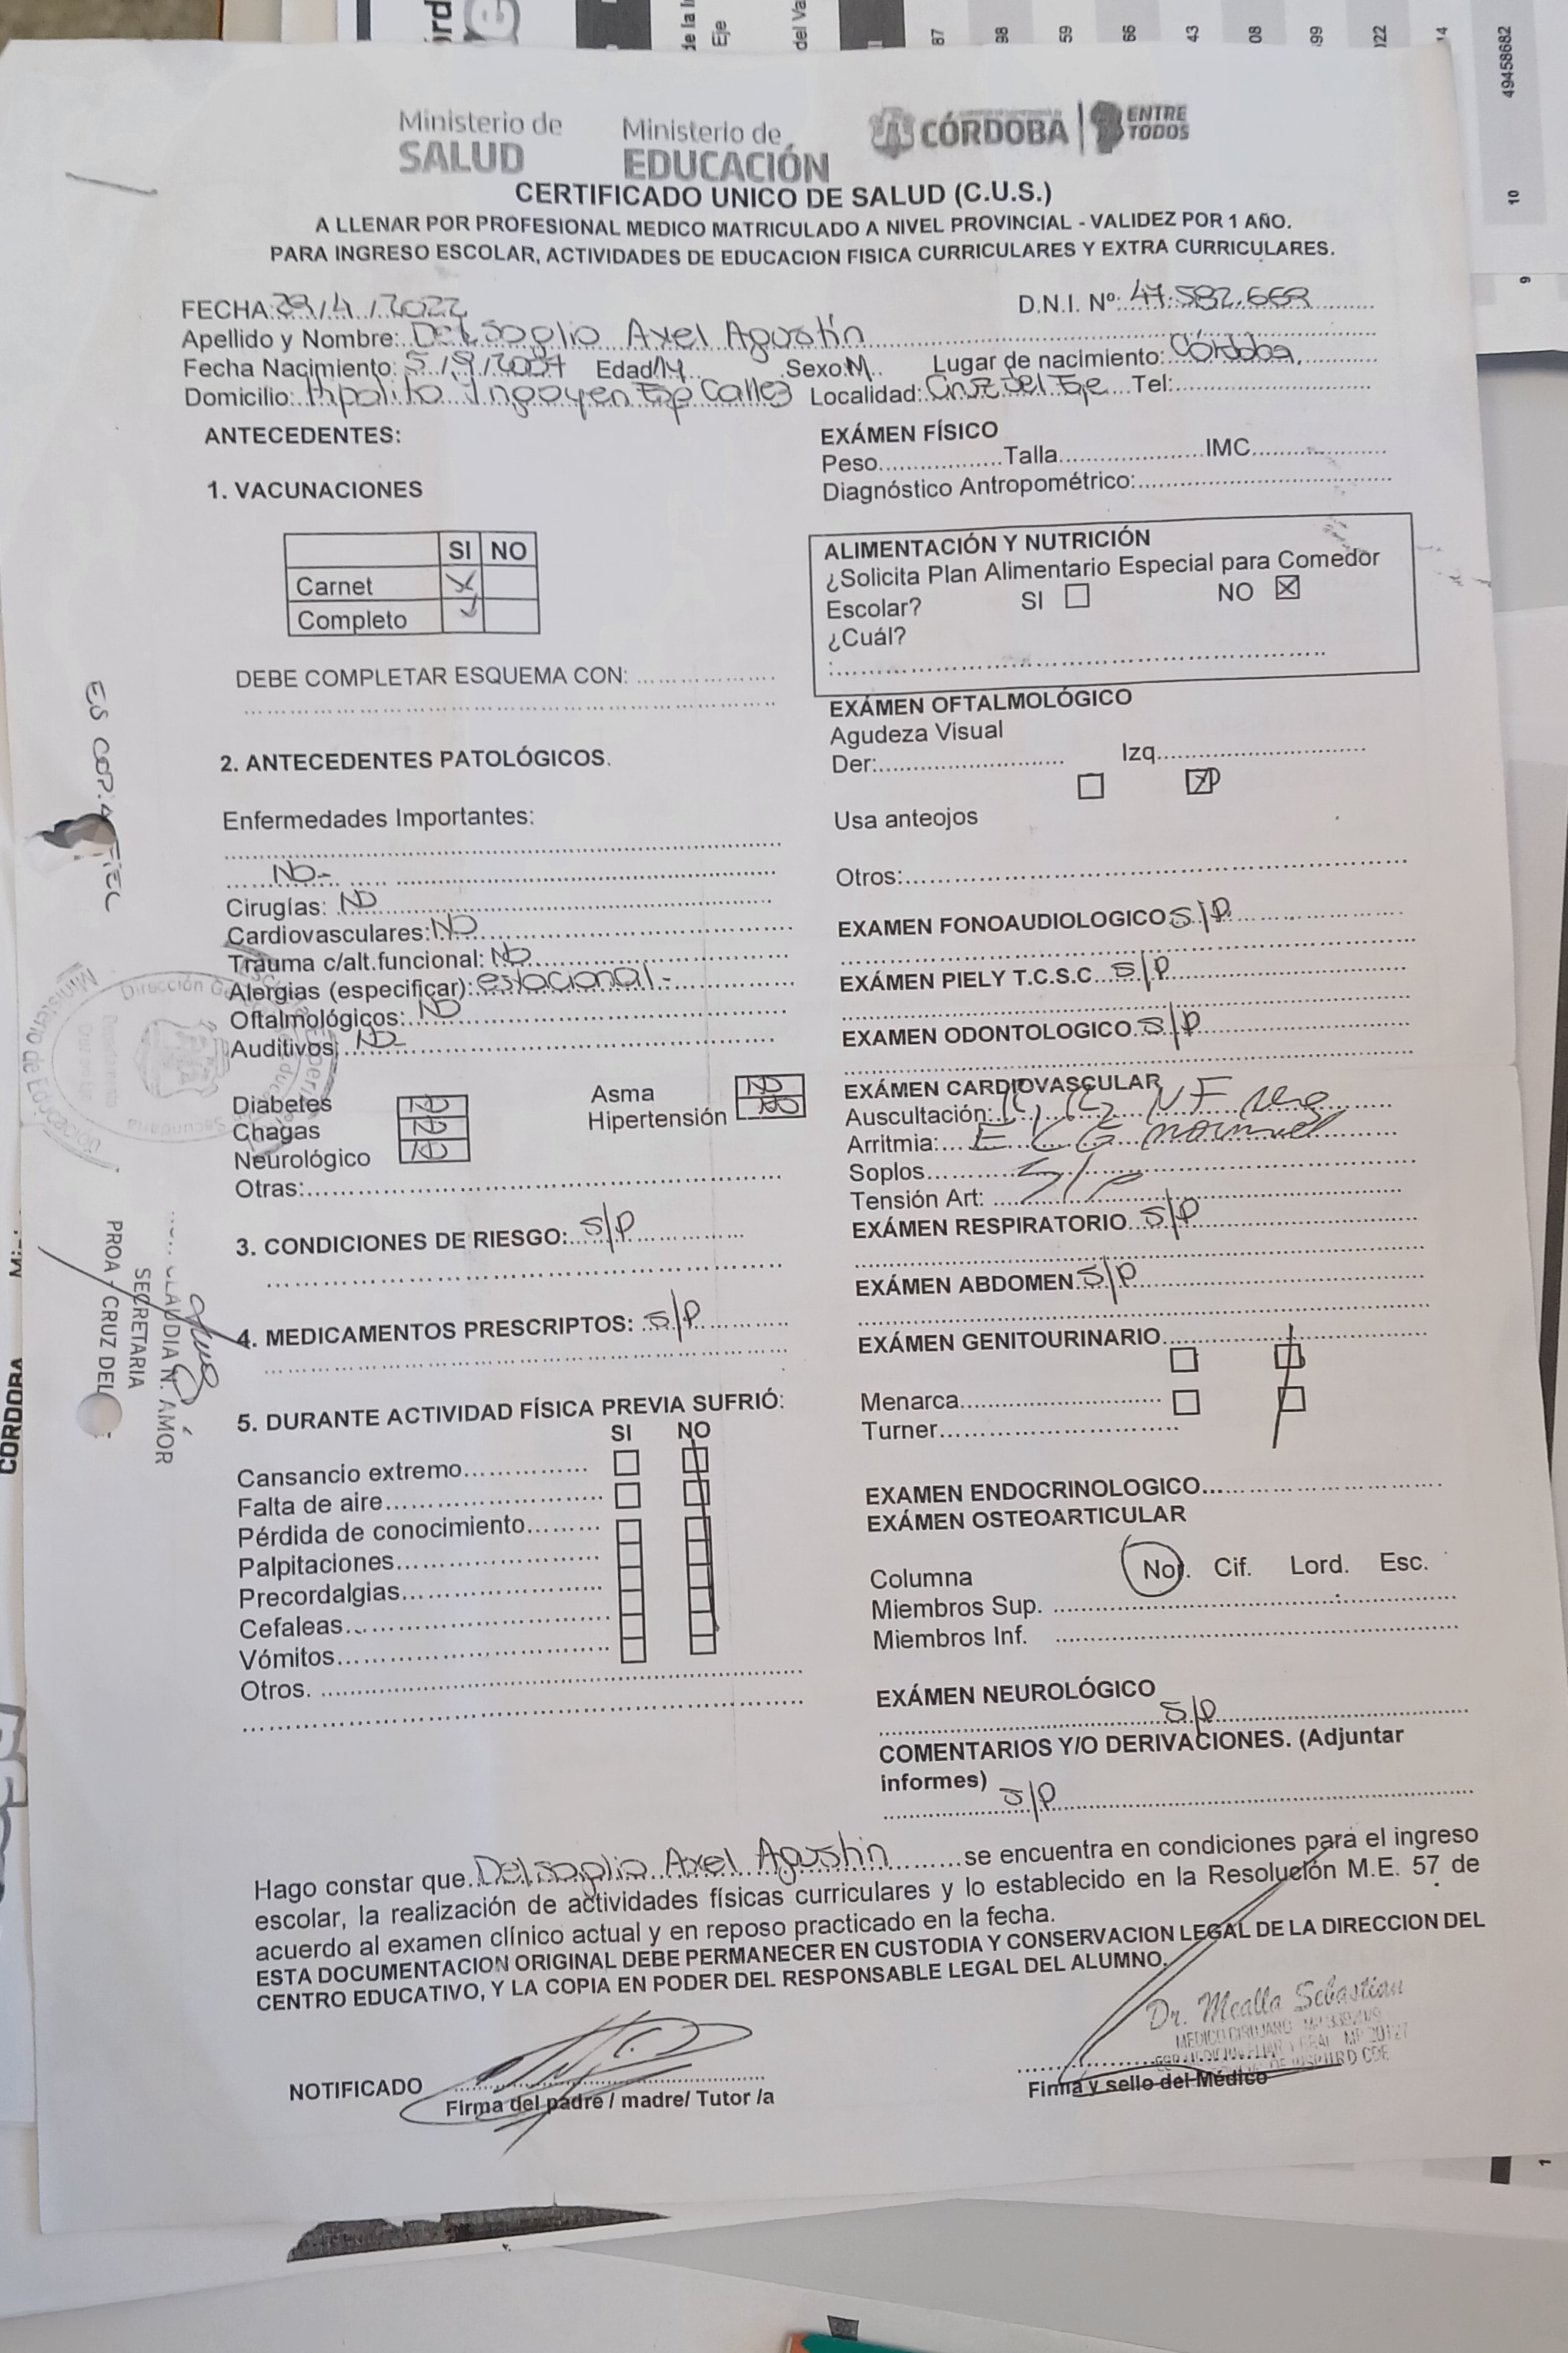 Ministerio de
SALUD
Ministerio de
EDUCACIÓN
CÓRDOBA
ENTRE
TODOS
CERTIFICADO UNICO DE SALUD (C.U.S.)
A LLENAR POR PROFESIONAL MEDICO MATRICULADO A NIVEL PROVINCIAL - VALIDEZ POR 1 AÑO.
PARA INGRESO ESCOLAR, ACTIVIDADES DE EDUCACION FISICA CURRICULARES Y EXTRA CURRICULARES.
FECHA: 29/4/2022 D.N.I. Nº: 47.582.669
Apellido y Nombre: Delsoglio Axel Agustín
Fecha Nacimiento: 5/9/2007 Edad 14 Sexo: M Lugar de nacimiento: Córdoba
Domicilio: Hipolito Yrigoyen Esp Calles Localidad: Cruz del Eje Tel:
ANTECEDENTES:
1. VACUNACIONES
SI NO
Carnet X
Completo
DEBE COMPLETAR ESQUEMA CON:
2. ANTECEDENTES PATOLÓGICOS.
Enfermedades Importantes:
NO-
Cirugías: NO
Cardiovasculares: NO
Trauma c/alt.funcional: NO
Alergias (especificar): estacional-
Oftalmológicos: NO
Auditivos: NO-
Diabetes NO Asma NO
Chagas NO Hipertensión NO
Neurológico NO
Otras:
3. CONDICIONES DE RIESGO: S/P
4. MEDICAMENTOS PRESCRIPTOS: S/P
5. DURANTE ACTIVIDAD FÍSICA PREVIA SUFRIÓ:
SI NO
Cansancio extremo
Falta de aire
Pérdida de conocimiento
Palpitaciones
Precordalgias
Cefaleas
Vómitos
Otros.
EXÁMEN FÍSICO
Peso Talla IMC
Diagnóstico Antropométrico:
ALIMENTACIÓN Y NUTRICIÓN
¿Solicita Plan Alimentario Especial para Comedor
Escolar? SI NO X
¿Cuál?
EXÁMEN OFTALMOLÓGICO
Agudeza Visual
Der: Izq.
Usa anteojos
Otros:
EXAMEN FONOAUDIOLOGICO S/P
EXÁMEN PIELY T.C.S.C. S/P
EXAMEN ODONTOLOGICO S/P
EXÁMEN CARDIOVASCULAR
Auscultación: NF
Arritmia: ECG normal
Soplos
Tensión Art: S/P
EXÁMEN RESPIRATORIO S/P
EXÁMEN ABDOMEN S/P
EXÁMEN GENITOURINARIO
Menarca
Turner
EXAMEN ENDOCRINOLOGICO
EXÁMEN OSTEOARTICULAR
Columna Nor. Cif. Lord. Esc.
Miembros Sup.
Miembros Inf.
EXÁMEN NEUROLÓGICO
S/P
COMENTARIOS Y/O DERIVACIONES. (Adjuntar
informes) S/P
Hago constar que Delsoglio Axel Agustín se encuentra en condiciones para el ingreso
escolar, la realización de actividades físicas curriculares y lo establecido en la Resolución M.E. 57 de
acuerdo al examen clínico actual y en reposo practicado en la fecha.
ESTA DOCUMENTACION ORIGINAL DEBE PERMANECER EN CUSTODIA Y CONSERVACION LEGAL DE LA DIRECCION DEL
CENTRO EDUCATIVO, Y LA COPIA EN PODER DEL RESPONSABLE LEGAL DEL ALUMNO.
NOTIFICADO
Firma del padre / madre/ Tutor /a
Dr. Mealla Sebastian
MEDICO CIRUJANO
Firma y sello del Médico
ES COPIA FIEL
Ministerio de Educación
CLAUDIA N. AMÓR
SECRETARIA
PROA - CRUZ DEL
CORDOBA
Eje
del Va
87
98
59
66
43
08
99
122
14
49458682
10
9